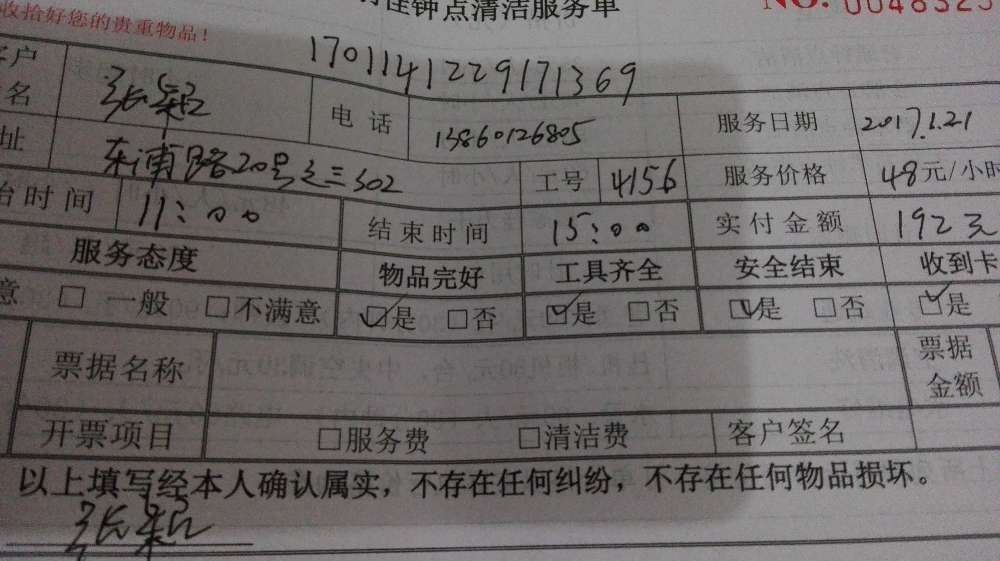 佳钟点清洁服务单
NO. 0048323
收拾好您的贵重物品！
1701141229171369
客户
名 电话 13860126805 服务日期 2017.1.21
址 东浦路20号之三302 工号 4156 服务价格 48元/小时
台时间 11:00 结束时间 15:00 实付金额 192元
服务态度 物品完好 工具齐全 安全结束 收到卡
意 □一般 □不满意 ☑是 □否 ☑是 □否 ☑是 □否 ☑是
票据名称 票据
金额
开票项目 □服务费 □清洁费 客户签名
以上填写经本人确认属实，不存在任何纠纷，不存在任何物品损坏。